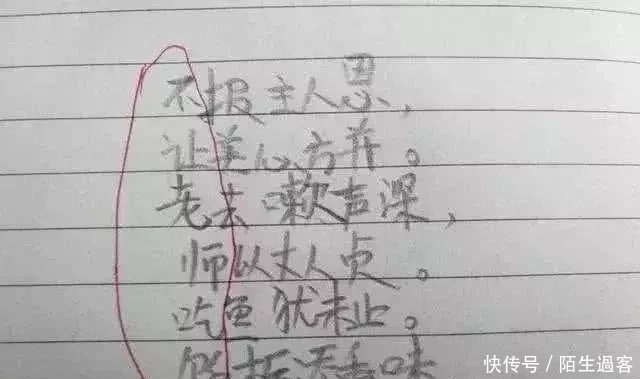 不报主人恩，
让美心方并。
老去嗽声深，
师以丈人贞。
吃鱼犹未止。
添香味
快传号／陌生過客